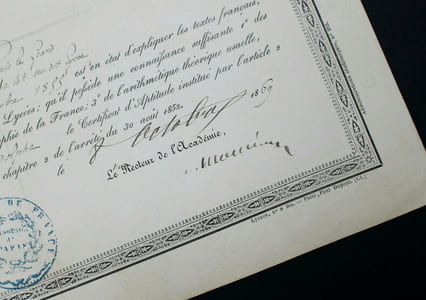 le Grand
1855 est en état d'expliquer les textes français,
Lycées; qu'il possède une connaissance suffisante 1° des
phie de la France; 3° de l'arithmétique théorique usuelle,
le Certificat d'Aptitude institué par l'article 2
chapitre 2 de l'arrêté du 30 août 1852.
le 8 octobre 1869
Le Recteur de l'Académie,
DE FRANCE
Lycées, n° 4 bis. — Paris, Paul Dupont. (Cl.)